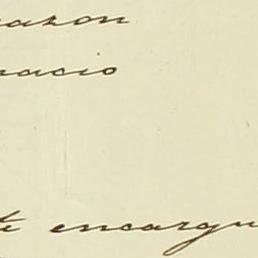 azon
nacio
te encargu